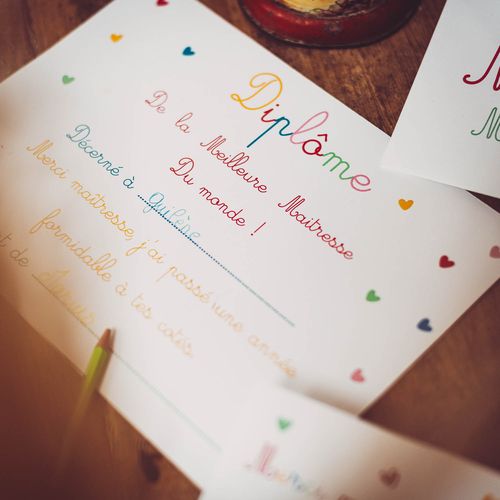 Diplôme
De la Meilleure Maitresse
Du monde !
Décerné à Guilène
Merci maîtresse, j'ai passé une année
formidable à tes cotés.
de